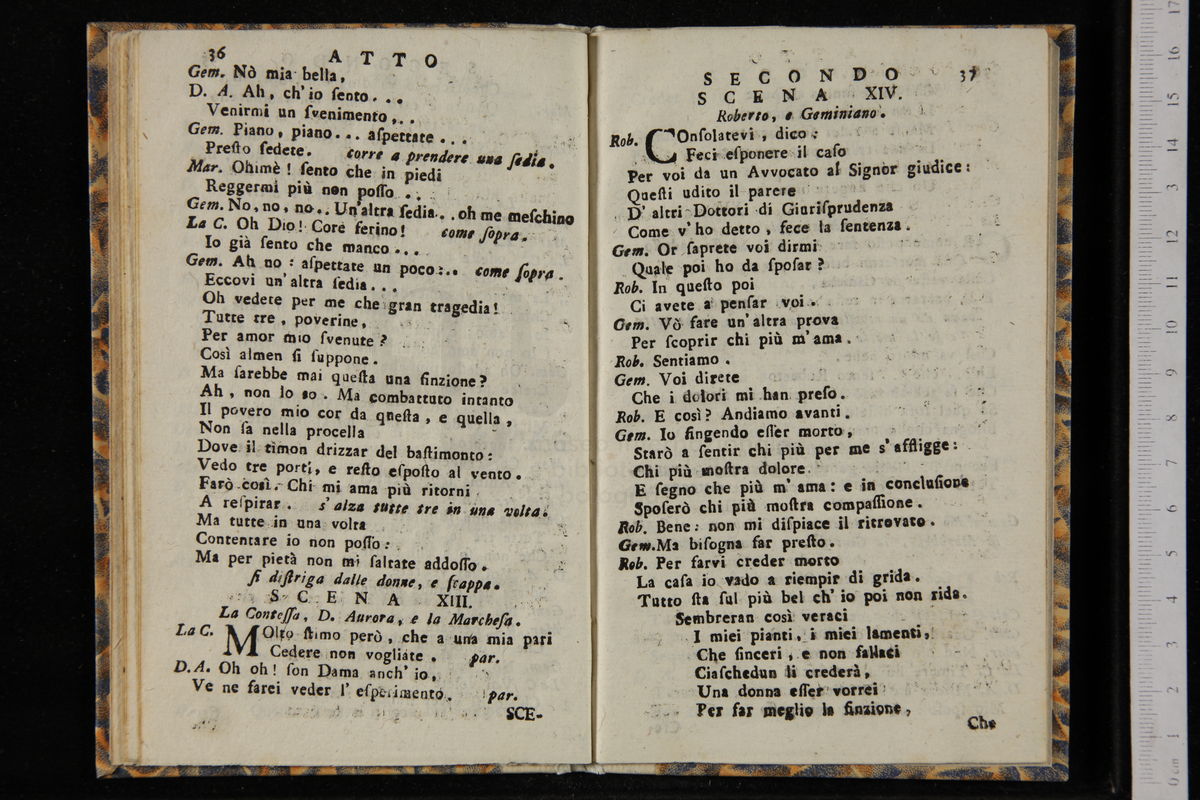 36 ATTO
Gem. Nò mia bella,
D. A. Ah, ch'io ſento...
Venirmi un ſvenimento,..
Gem. Piano, piano... aſpettate...
Preſto ſedete. corre a prendere una ſedia.
Mar. Ohimè! ſento che in piedi
Reggermi più non poſſo...
Gem. No, no, no.. Un'altra ſedia... oh me meſchino
La C. Oh Dio! Core ferino! come ſopra.
Io già ſento che manco...
Gem. Ah no: aſpettate un poco:.. come ſopra.
Eccovi un'altra ſedia...
Oh vedete per me che gran tragedia!
Tutte tre, poverine,
Per amor mio ſvenute?
Così almen ſi ſuppone.
Ma ſarebbe mai queſta una finzione?
Ah, non lo so. Ma combattuto intanto
Il povero mio cor da queſta, e quella,
Non ſa nella procella
Dove il timon drizzar del baſtimonto:
Vedo tre porti, e reſto eſpoſto al vento.
Farò così. Chi mi ama più ritorni
A reſpirar. s'alza tutte tre in una volta.
Ma tutte in una volta
Contentare io non poſſo:
Ma per pietà non mi ſaltate addoſſo.
ſi diſtriga dalle donne, e ſcappa.
SCENA XIII.
La Conteſſa, D. Aurora, e la Marcheſa.
La C. MOlto ſtimo però, che a una mia pari
Cedere non vogliate. par.
D. A. Oh oh! ſon Dama anch'io,
Ve ne farei veder l'eſperimento. par.
SCE-
SECONDO 37
SCENA XIV.
Roberto, e Geminiano.
Rob. COnſolatevi, dico:
Feci eſponere il caſo
Per voi da un Avvocato al Signòr giudice:
Queſti udito il parere
D'altri Dottori di Giuriſprudenza
Come v'ho detto, fece la ſentenza.
Gem. Or ſaprete voi dirmi
Quale poi ho da ſpoſar?
Rob. In queſto poi
Ci avete a penſar voi.
Gem. Vò fare un'altra prova
Per ſcoprir chi più m'ama.
Rob. Sentiamo.
Gem. Voi direte
Che i dolori mi han preſo.
Rob. E così? Andiamo avanti.
Gem. Io fingendo eſſer morto,
Starò a ſentir chi più per me s'affligge:
Chi più moſtra dolore.
E ſegno che più m'ama: e in concluſione
Spoſerò chi più moſtra compaſſione.
Rob. Bene: non mi diſpiace il ritrovato.
Gem. Ma biſogna far preſto.
Rob. Per farvi creder morto
La caſa io vado a riempir di grida.
Tutto ſta ſul più bel ch'io poi non rida.
Sembreran così veraci
I miei pianti, i miei lamenti,
Che ſinceri, e non fallaci
Ciaſchedun li crederà,
Una donna eſſer vorrei
Per far meglio la finzione,
Che